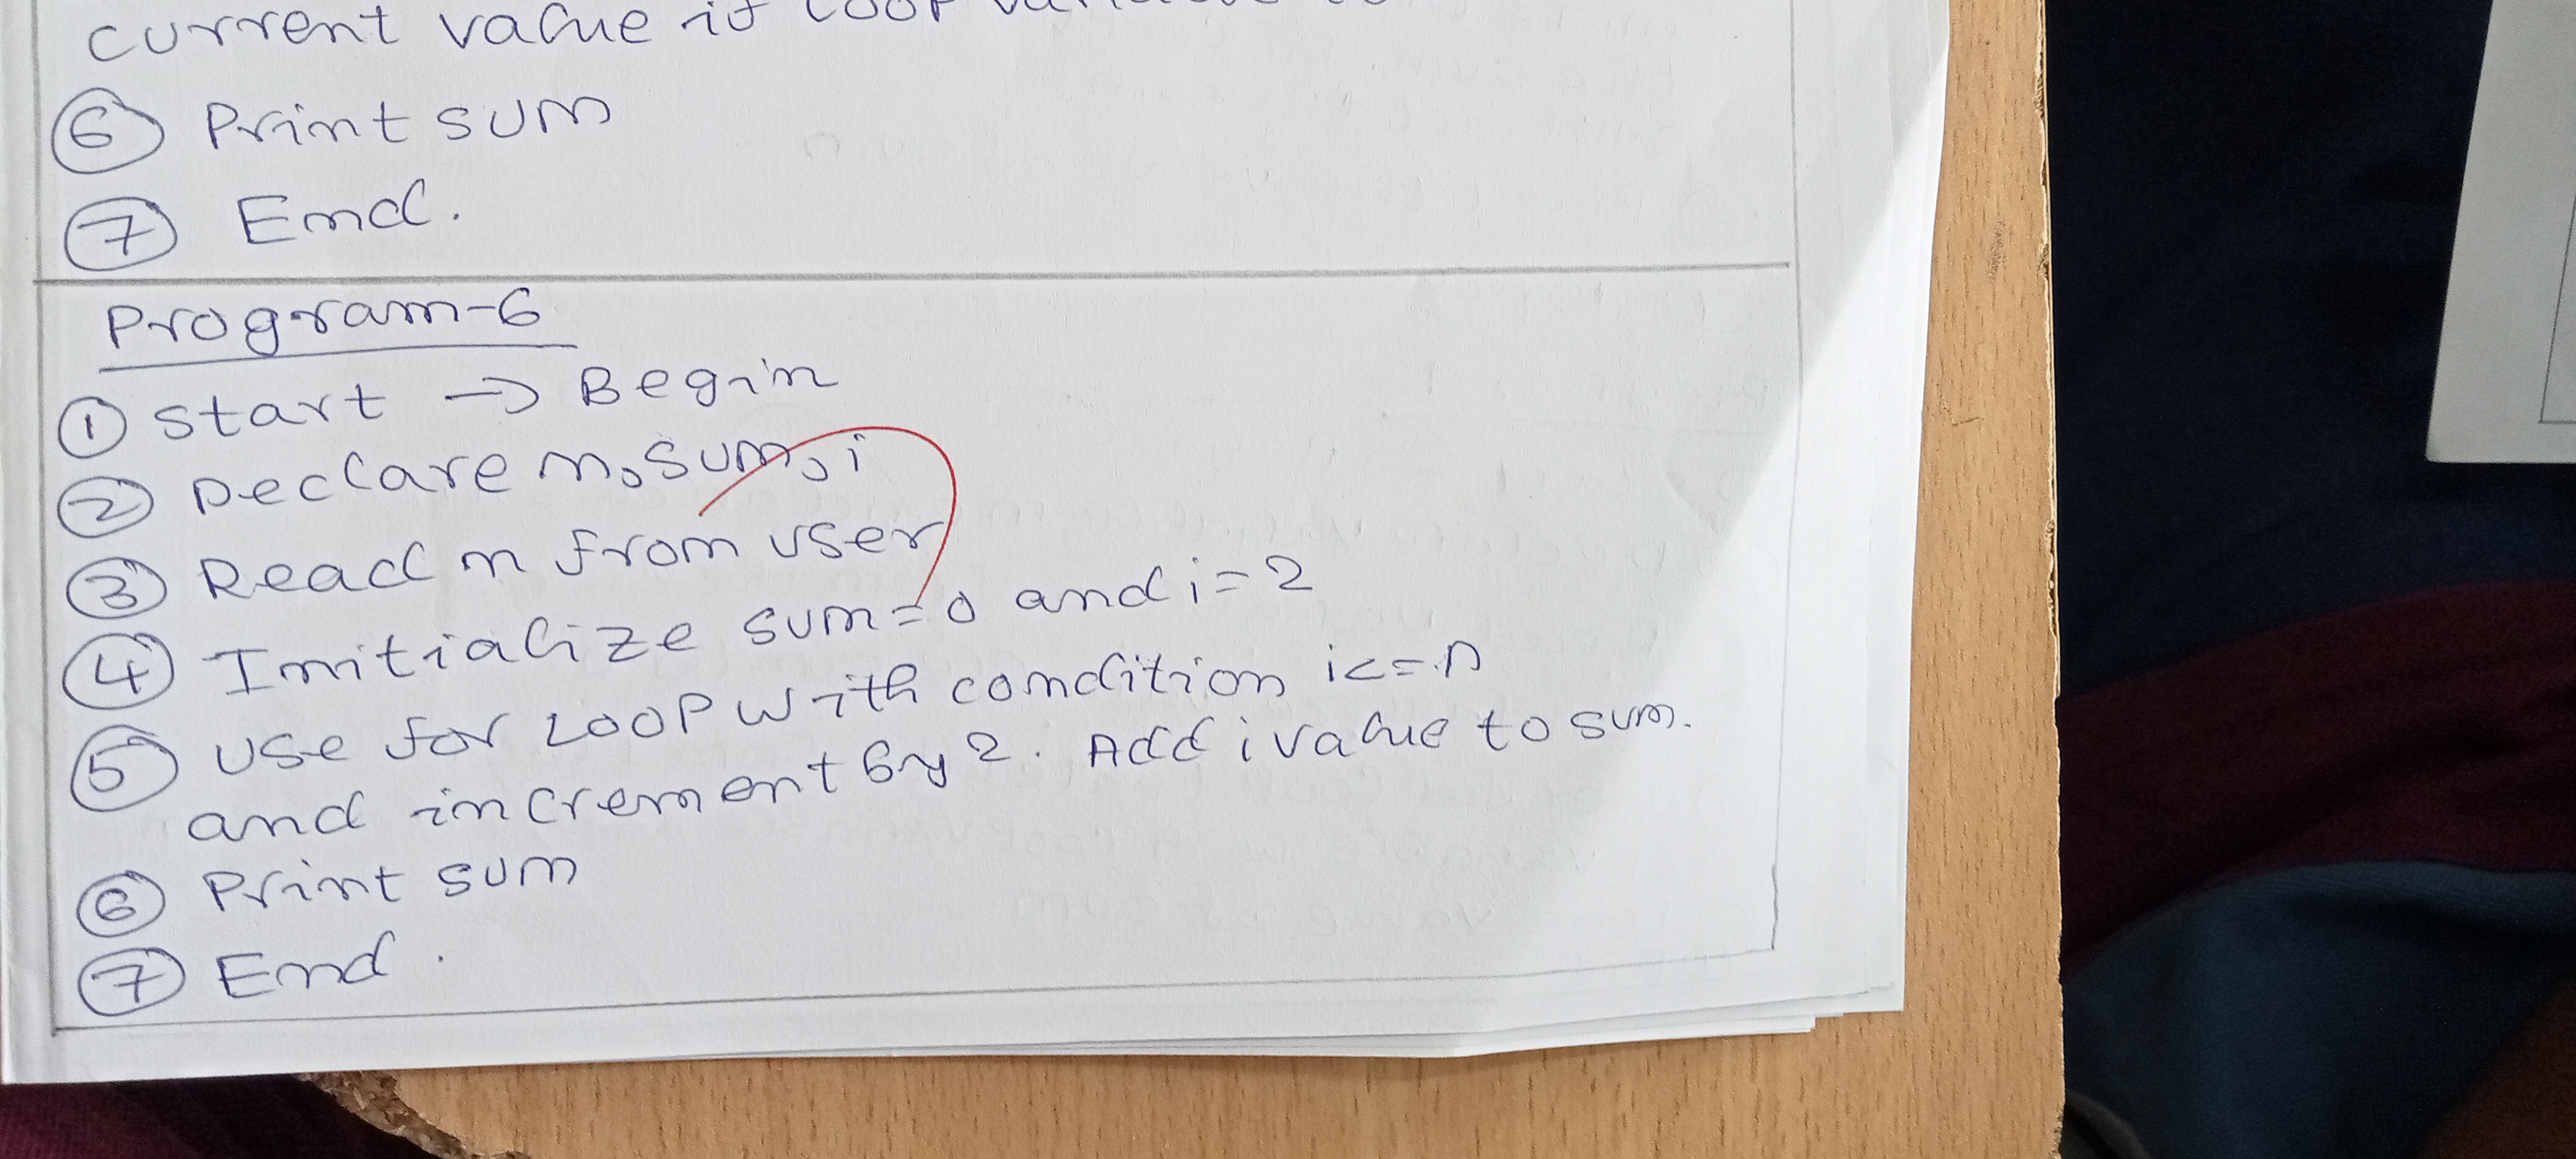 current value if loop
⑥ Print sum
⑦ End.
Program-6
① Start → Begin
② Declare n, sum, i
③ Read n from user
④ Initialize sum=0 and i=2
⑤ Use for Loop with condition i<=n
and increment by 2. Add i value to sum.
⑥ Print sum
⑦ End.